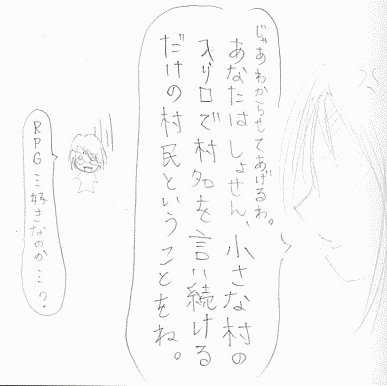 じゃあわからせてあげるわ。
あなたはしょせん、小さな村の
入り口で村名を言い続ける
だけの村民ということをね。
RPG…好きなのか…?